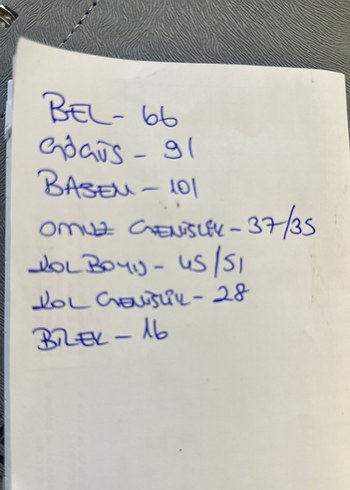 BEL - 66
GÖĞÜS - 91
BASEN - 101
OMUZ GENİSLİK - 37/35
KOL BOYU - 45/51
KOL GENİSLİK - 28
BİLEK - 16